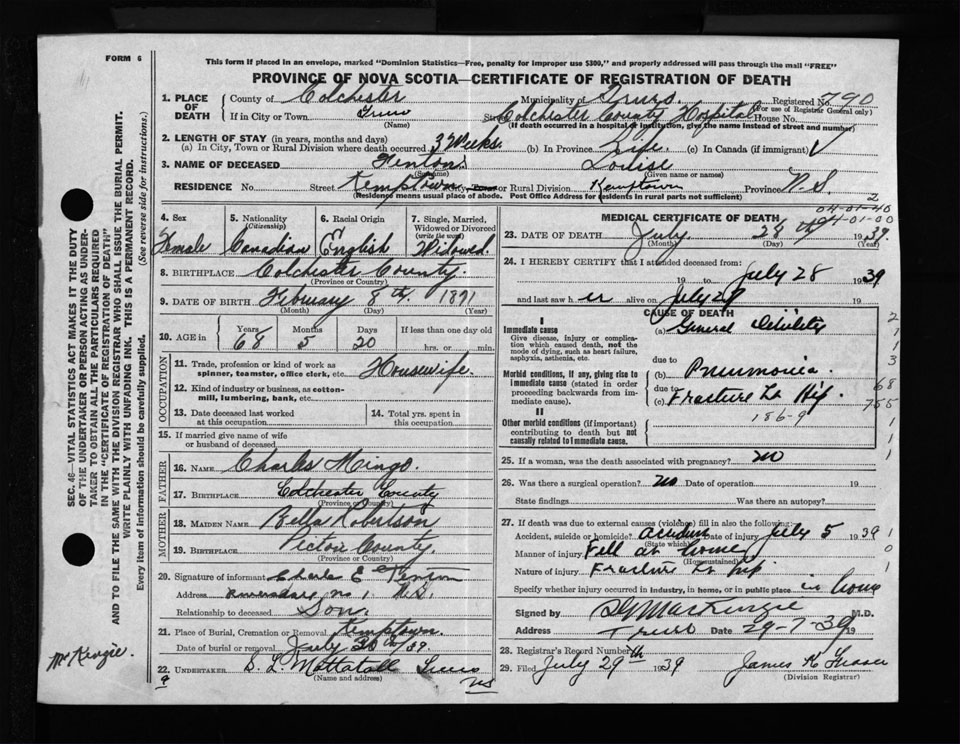 FORM 6
This form if placed in an envelope, marked "Dominion Statistics—Free, penalty for improper use $300," and properly addressed will pass through the mail "FREE"
PROVINCE OF NOVA SCOTIA—CERTIFICATE OF REGISTRATION OF DEATH
1. PLACE OF DEATH County of Colchester Municipality of Truro Registered No. 790
(For use of Registrar General only)
If in City or Town Truro Street Colchester County Hospital House No.
(Name) (If death occurred in a hospital or institution, give the name instead of street and number)
2. LENGTH OF STAY (in years, months and days)
(a) In City, Town or Rural Division where death occurred 3 Weeks. (b) In Province Life. (c) In Canada (if immigrant)
3. NAME OF DECEASED Fenton Louise
(Surname) (Given name or names)
RESIDENCE No. Street Kemptown or Rural Division Kemptown Province N.S.
(Residence means usual place of abode. Post Office Address for residents in rural parts not sufficient)
4. Sex 5. Nationality 6. Racial Origin 7. Single, Married, Widowed or Divorced
(Citizenship) (write the word)
Female Canadian English Widowed.
8. BIRTHPLACE Colchester County.
(Province or Country)
9. DATE OF BIRTH February 8th, 1871
(Month) (Day) (Year)
10. AGE in Years Months Days If less than one day old
68 5 20 hrs. or min.
OCCUPATION
11. Trade, profession or kind of work as spinner, teamster, office clerk, etc. Housewife.
12. Kind of industry or business, as cotton-mill, lumbering, bank, etc.
13. Date deceased last worked at this occupation 14. Total yrs. spent in this occupation
15. If married give name of wife or husband of deceased
FATHER
16. NAME Charles Mingo.
17. BIRTHPLACE Colchester County
(Province or Country)
MOTHER
18. MAIDEN NAME Bella Robertson
19. BIRTHPLACE Pictou County.
(Province or Country)
20. Signature of informant Charle E Fenton
Address Riversdale No 1, N.S.
Relationship to deceased Son.
21. Place of Burial, Cremation or Removal Kemptown.
Date of burial or removal July 30th/39.
22. UNDERTAKER D. L. Mattatall Truro
(Name and address) NS
MEDICAL CERTIFICATE OF DEATH
2
04-01-40
04-01-00
23. DATE OF DEATH July 28th 1939
(Month) (Day) (Year)
24. I HEREBY CERTIFY that I attended deceased from:
19 to July 28 1939
and last saw her alive on July 28 19
CAUSE OF DEATH
I
Immediate cause
Give disease, injury or complication which caused death, not the mode of dying, such as heart failure, asphyxia, asthenia, etc.
(a) General Debility
due to
Morbid conditions, if any, giving rise to immediate cause (stated in order proceeding backwards from immediate cause).
(b) Pneumonia.
due to
(c) Fracture Lt Hip.
186-9
II
Other morbid conditions (if important) contributing to death but not causally related to immediate cause.
2
1
1
3
68
755
1
1
1
25. If a woman, was the death associated with pregnancy? no
26. Was there a surgical operation? no Date of operation 19
State findings Was there an autopsy?
27. If death was due to external causes (violence) fill in also the following:—
Accident, suicide or homicide? accident Date of injury July 5 1939
(State which)
Manner of injury Fell at home
(How sustained)
Nature of injury Fracture Lt hip
Specify whether injury occurred in industry, in home, or in public place in home
1
0
1
Signed by MacKenzie M.D.
Address Truro Date 29-7-39 19
28. Registrar's Record Number
29. Filed July 29th 1939 James K Fraser
(Division Registrar)
SEC. 46—VITAL STATISTICS ACT MAKES IT THE DUTY OF THE UNDERTAKER OR PERSON ACTING AS UNDERTAKER TO OBTAIN ALL THE PARTICULARS REQUIRED IN THE "CERTIFICATE OF REGISTRATION OF DEATH"
AND TO FILE THE SAME WITH THE DIVISION REGISTRAR WHO SHALL ISSUE THE BURIAL PERMIT.
WRITE PLAINLY WITH UNFADING INK. THIS IS A PERMANENT RECORD.
Every item of information should be carefully supplied. (See reverse side for instructions.)
McKenzie.